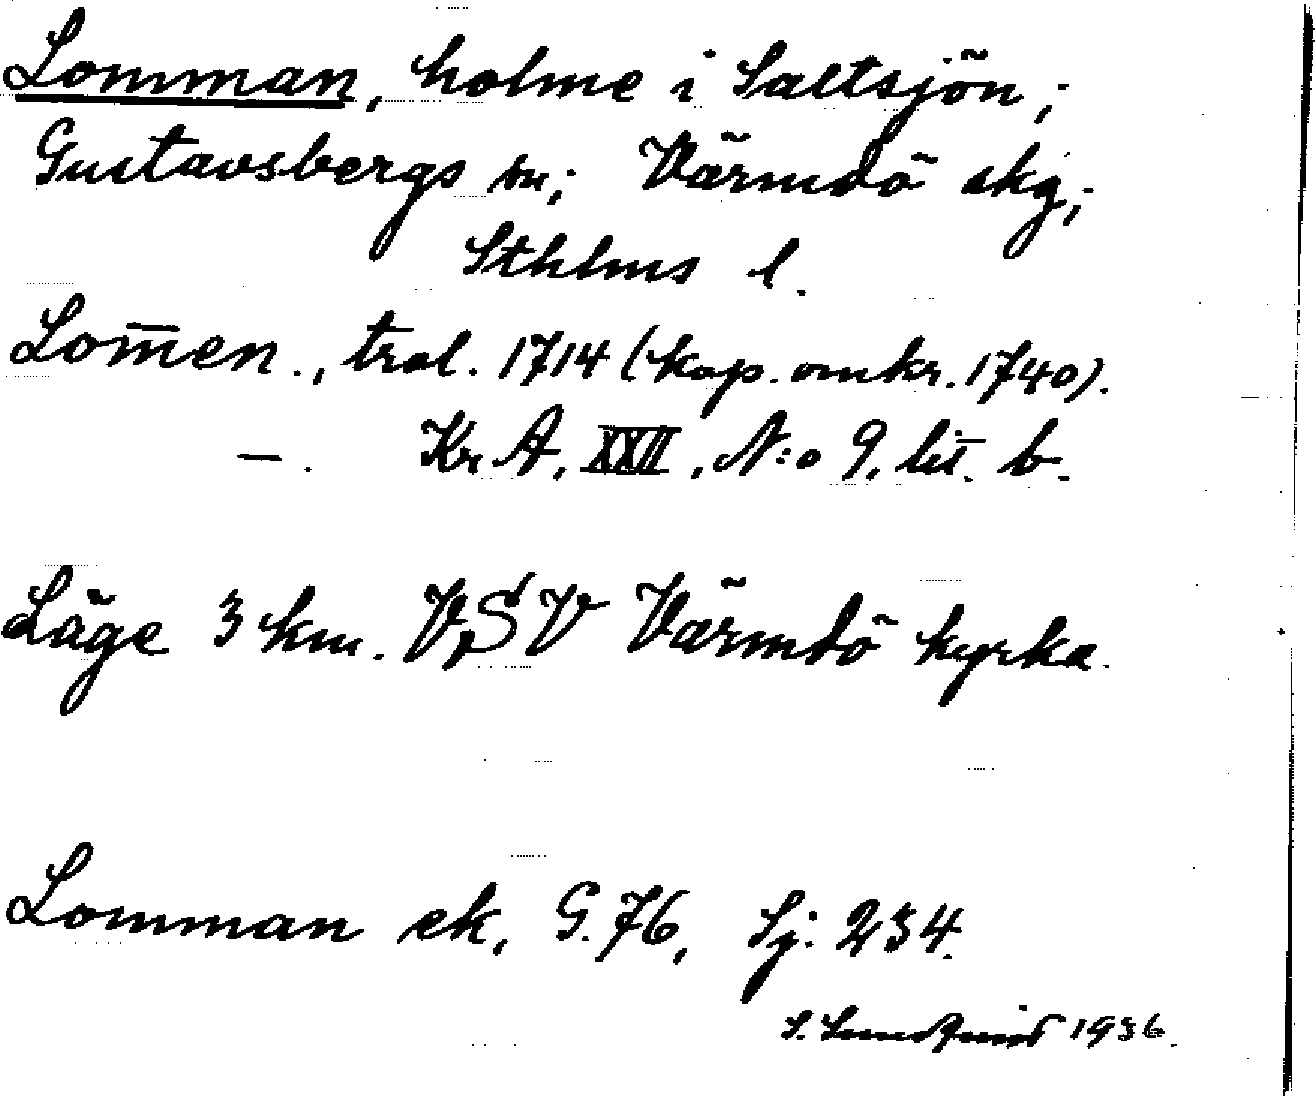 Lomman, holme i Saltsjön;
Gustavsbergs sn; Värmdö skg;
Sthlms l.
Lom̅en., tral. 1714 (kop. omkr. 1740).
—. Kr A, XXII, N:o 9, lit. b.
Läge 3 km. VSV Värmdö kyrka.
Lomman ek, G. 76, Sj: 234.
S. Lundqvist 1936.